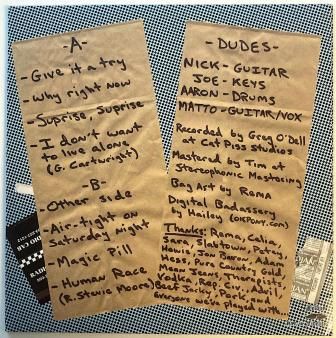 -A-
-Give it a try
-Why right now
-Suprise, Suprise
-I don't want
to live alone
(G. Cartwright)
-B-
-Other side
-Air-tight on
Saturday night
-Magic Pill
-Human Race
(R. Stevie Moore)
-DUDES-
NICK-GUITAR
JOE-KEYS
AARON-DRUMS
MATTO-GUITAR/VOX
Recorded by Greg O'Dell
at Cat Piss Studios
Mastered by Tim at
Stereophonic Mastering
Bag Art by Rama
Digital Badassery
by Hailey (okpony.com)
Thanks: Rama, Celia,
Sara, Slabtown, Petey,
Howie, Jon Baron, Adam
Hess, New Country Gold,
Mean Jeans, Therapists,
Rep. Civ., April,
Beef Jerky, Pork, and
everyone we've played with...